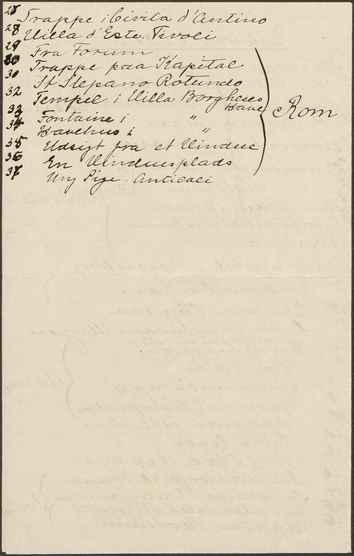 28 Trappe i Civita d'Antino
28 Villa d'Este. Tivoli
29 Fra Forum
30 Trappe paa Kapital
30 St Stepano Rotundo
32 Tempel i Villa Borgheses
Have
33 Fontaine i "
34 Havehus i "
35 Udsigt fra et Vindue
36 En Vinduesplads
37 Ung Pige. Anticoli
Rom